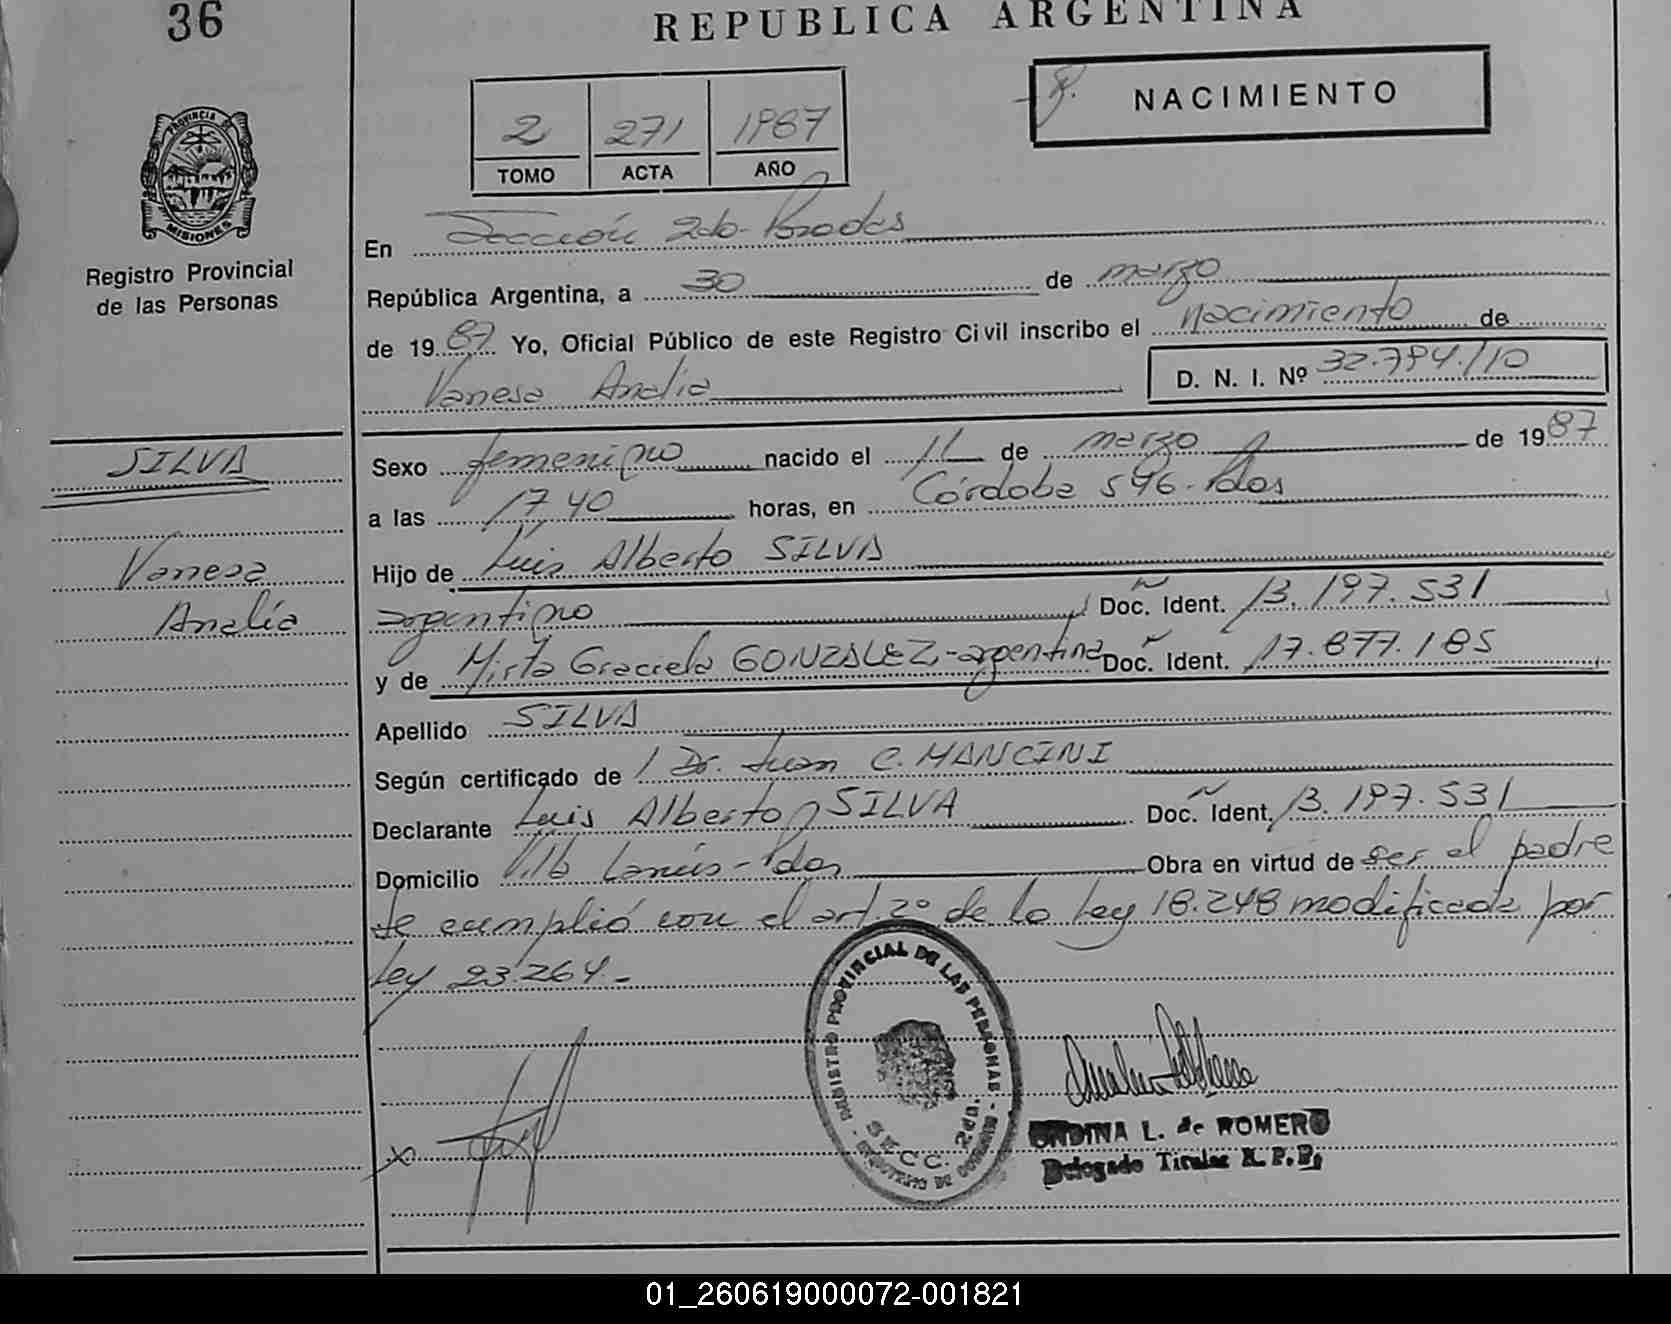 36
REPUBLICA ARGENTINA
NACIMIENTO
2 271 1987
TOMO ACTA AÑO
PROVINCIA DE
MISIONES
Registro Provincial
de las Personas
En Sección 2do- Posadas
República Argentina, a 30 de marzo
de 1987 Yo, Oficial Público de este Registro Civil inscribo el nacimiento de
Vanesa Analia D. N. I. Nº 32.794.110
SILVA
Vanesa
Analía
Sexo femenino nacido el 11 de marzo de 1987
a las 17 40 horas, en Córdoba 596- Pdas
Hijo de Luis Alberto SILVA
argentino Doc. Ident. 13.197.531
y de Mirta Graciela GONZALEZ,-argentina Doc. Ident. 17.877.185
Apellido SILVA
Según certificado de / Dr. Juan C. MANCINI
Declarante Luis Alberto SILVA Doc. Ident. 13.197.531
Domicilio Villa Lanús- Pdas Obra en virtud de ser el padre
Se cumplió con el art. 2º de la Ley 18.248 modificada por
Ley 23.264.-
MINISTRO PROVINCIAL DE LAS PERSONAS
SECC. 2da.
x
ONDINA L. de ROMERO
Delegado Titular R. P. P.
01_260619000072-001821